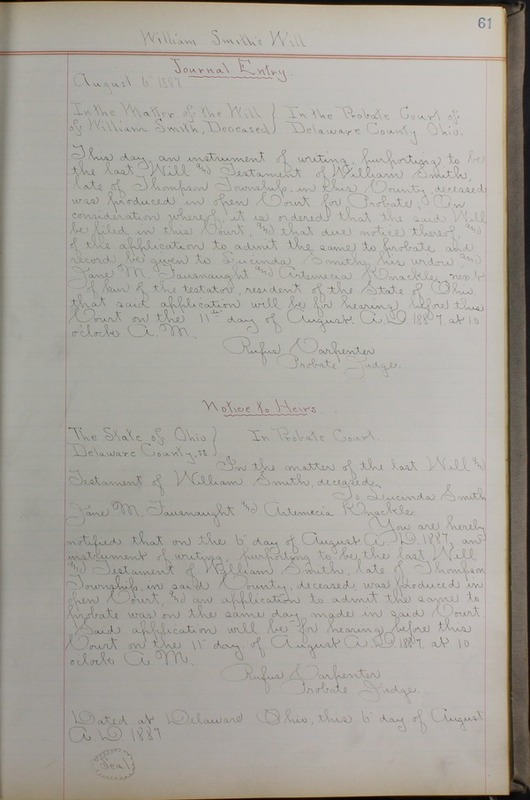 61
William Smith's Will
Journal Entry.
August 6" 1887
In the Matter of the Will } In the Probate Court of
of William Smith, Deceased } Delaware County Ohio.
This day, an instrument of writing, purporting to be
the last Will and Testament of William Smith,
late of Thompson Township in this County, deceased
was produced in open Court for Probate. On
consideration whereof, it is ordered that the said Will
be filed in this Court, and that due notice thereof, and
of the application to admit the same to probate and
record, be given to Lucinda Smith, his widow and
Jane M. Fausnaught and Artemecia Knackle, next
of kin of the testator, resident of the State of Ohio
that said application will be for hearing before this
Court on the 11th day of August. A.D. 1887 at 10
o'clock A. M.
Rufus Carpenter
Probate Judge.
Notice to Heirs.
The State of Ohio } In Probate Court.
Delaware County, ss }
In the matter of the last Will and
Testament of William Smith, deceased,
To Lucinda Smith
Jane M. Fausnaught and Artemecia Knackle
You are hereby
notified that on the 6" day of August A.D. 1887, an
instrument of writing, purporting to be the last Will
and Testament of William Smith, late of Thompson
Township, in said County, deceased, was produced in
open Court, and an application to admit the same to
probate was on the same day made in said Court
Said application will be for hearing before this
Court on the 11" day of August A.D. 1887. at 10
oclock A. M.
Rufus Carpenter
Probate Judge.
Dated at Delaware Ohio, this 6" day of August
A. D. 1887
Seal